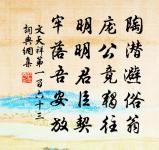 陶潛避俗翁
龐公竟獨往
明明君臣契
牢落吾安放
文天祥第一百六十三
詞典網集